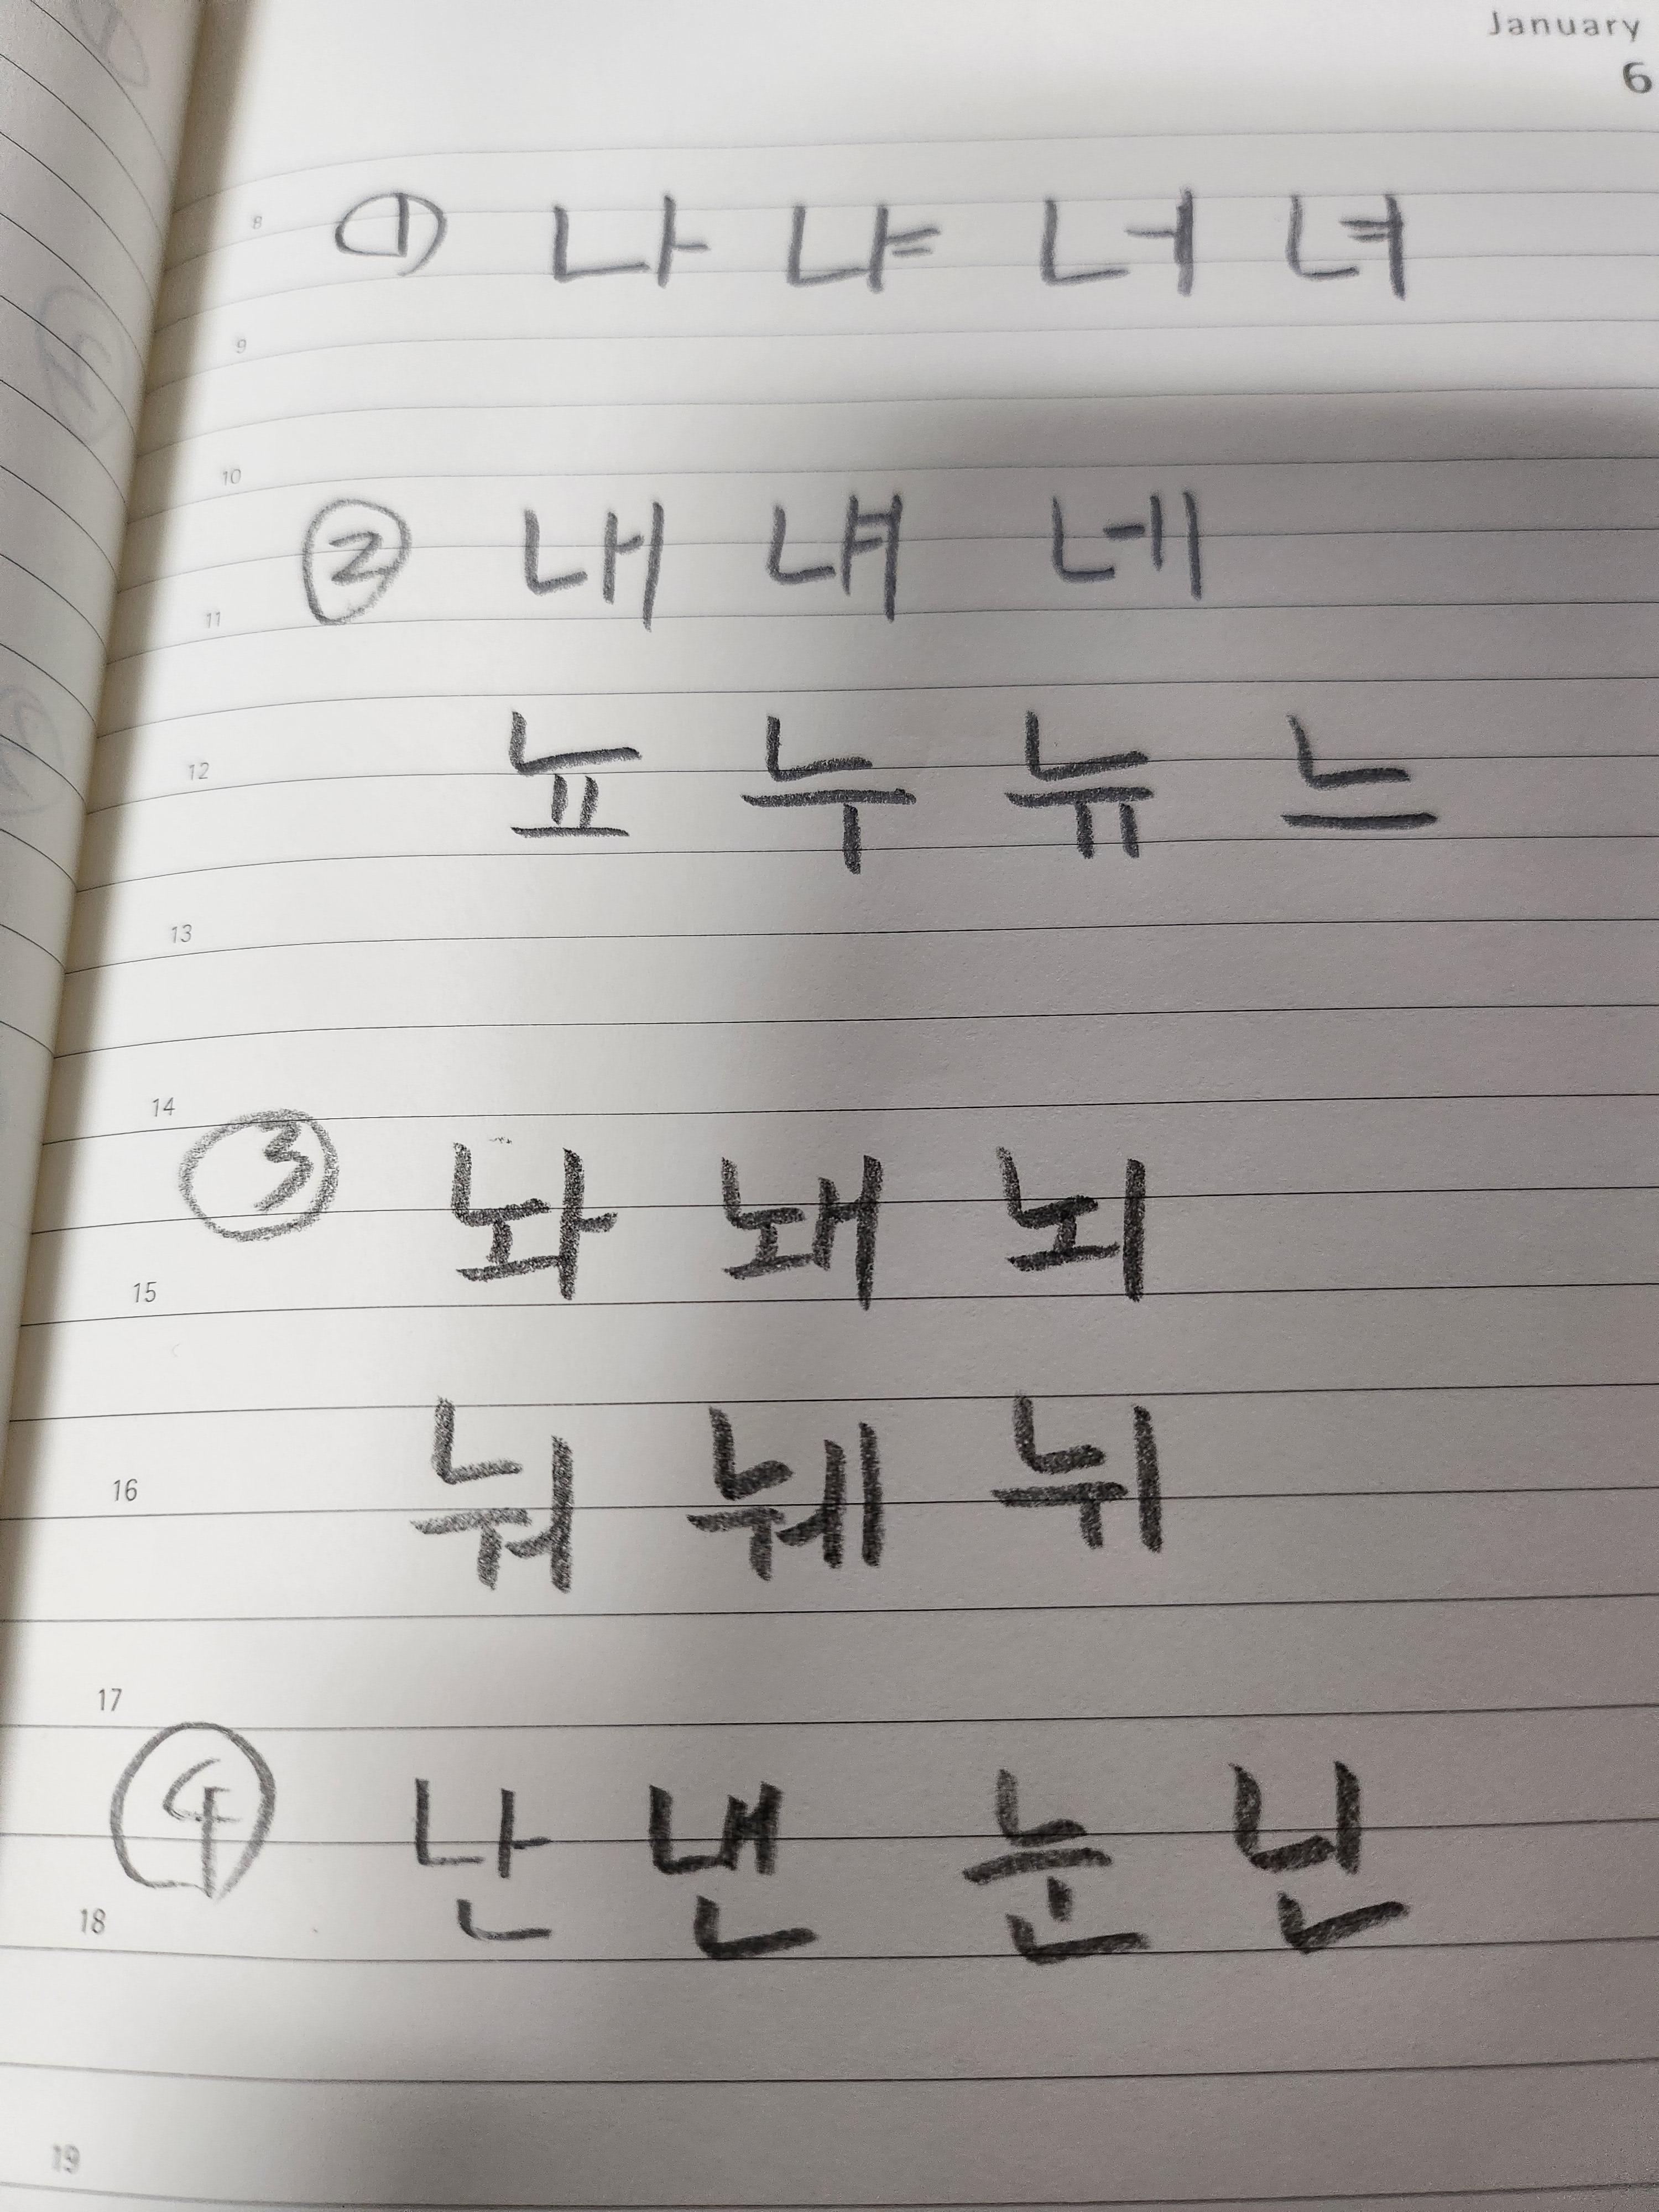 January
6
8
① 나 냐 너 녀
9
10
② 내 냬 네
11
12 뇨 누 뉴 느
13
14
③ 놔 놰 뇌
15
16 눠 눼 뉘
17
④ 난 낸 눈 닌
18
19